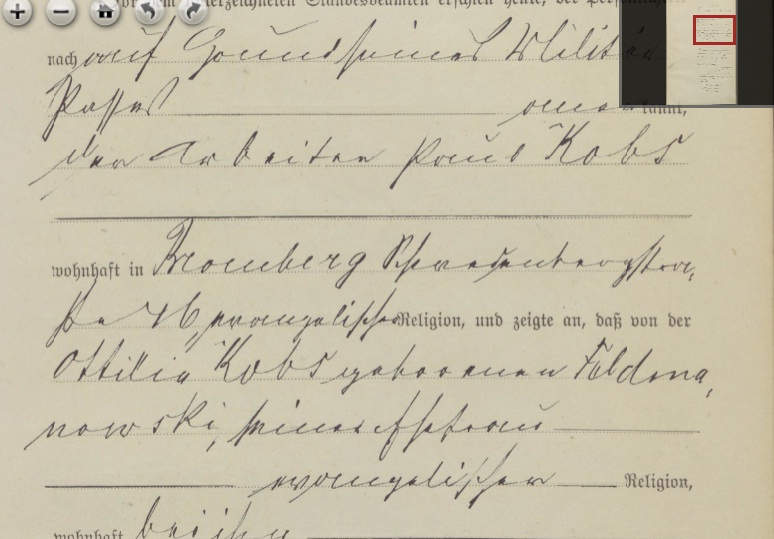 erzeichneten Standesbeamten erschien heute, der Persönlich
nach auf Grund seines Militär
Passes aner kannt,
der Arbeiter Paul Kobs
wohnhaft in Bromberg
ße 16, evangelischer Religion, und zeigte an, daß von der
Ottilie Kobs geborenen Feldma,
nowski, seiner Ehefrau
evangelischer Religion,
wohnhaft bei ihm